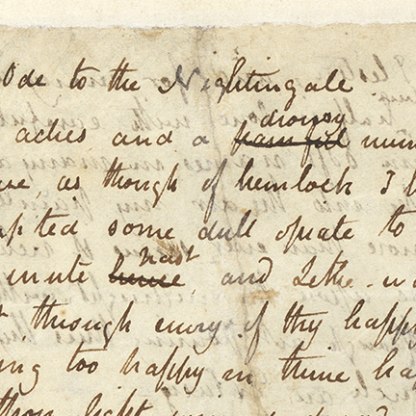 Ode to the Nightingale
drowsy
aches and a painful num
as though of hemlock I
pted some dull opiate to
past
minute hence and Lethe-w
through envy of thy happy
ing too happy in thine ha
thou light